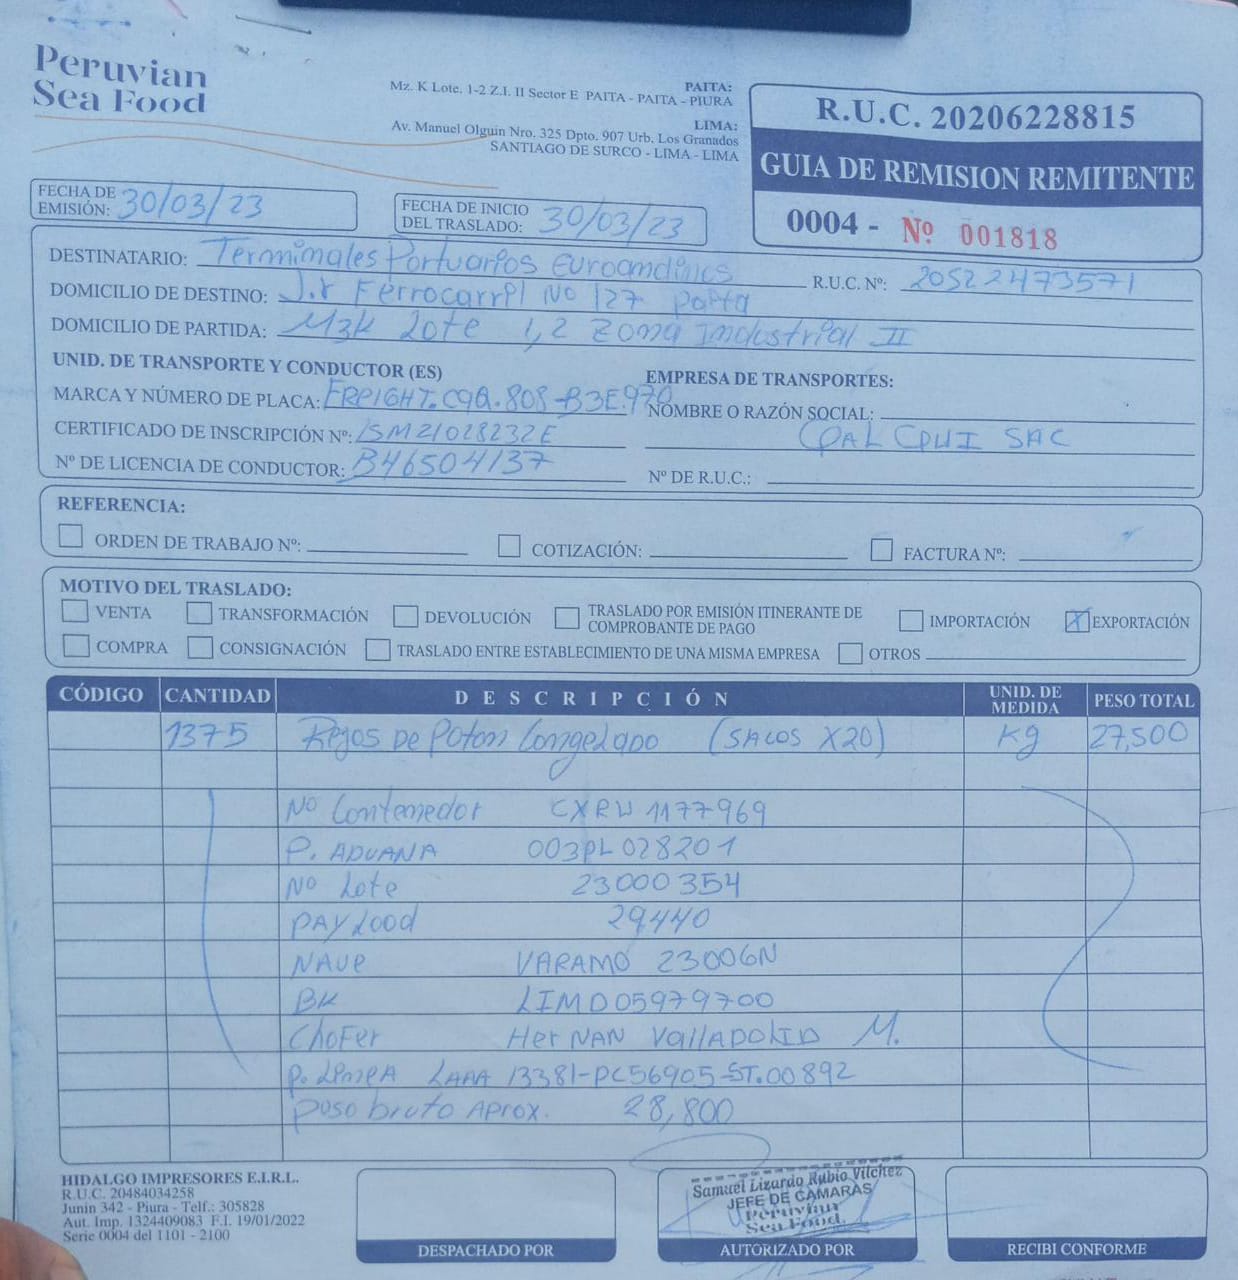 Peruvian
Sea Food
PAITA:
Mz. K Lote. 1-2 Z.I. II Sector E PAITA - PAITA - PIURA
LIMA:
Av. Manuel Olguin Nro. 325 Dpto. 907 Urb. Los Granados
SANTIAGO DE SURCO - LIMA - LIMA
R.U.C. 20206228815
GUIA DE REMISION REMITENTE
0004 - Nº 001818
FECHA DE EMISIÓN: 30/03/23
FECHA DE INICIO DEL TRASLADO: 30/03/23
DESTINATARIO: Terminales Portuarios Euroandinos R.U.C. Nº: 20522473571
DOMICILIO DE DESTINO: J.r Ferrocarril No 127 Paita
DOMICILIO DE PARTIDA: MzK Lote 1,2 Zona Industrial II
UNID. DE TRANSPORTE Y CONDUCTOR (ES)
EMPRESA DE TRANSPORTES:
MARCA Y NÚMERO DE PLACA: FREIGHT. C9Q.808-B3E.970
NOMBRE O RAZÓN SOCIAL:
CERTIFICADO DE INSCRIPCIÓN Nº: 15M21028232E
QALCQUI SAC
Nº DE LICENCIA DE CONDUCTOR: B46504137
Nº DE R.U.C.:
REFERENCIA:
ORDEN DE TRABAJO Nº: COTIZACIÓN: FACTURA Nº:
MOTIVO DEL TRASLADO:
VENTA TRANSFORMACIÓN DEVOLUCIÓN TRASLADO POR EMISIÓN ITINERANTE DE COMPROBANTE DE PAGO IMPORTACIÓN X EXPORTACIÓN
COMPRA CONSIGNACIÓN TRASLADO ENTRE ESTABLECIMIENTO DE UNA MISMA EMPRESA OTROS
CÓDIGO CANTIDAD DESCRIPCIÓN UNID. DE MEDIDA PESO TOTAL
1375 Rejos De Poton Congelado (SACOS X20) Kg 27,500
No Contenedor CXRU 1177969
P. ADUANA 003PL028201
No Lote 23000354
PAYLOOD 29440
NAVE VARAMO 23006N
BK LIMD05979700
CHOFER HerNAN VallADOLID M.
P. LINEA LAAA 13381-PC56905-ST.00892
Peso bruto Aprox. 28,800
HIDALGO IMPRESORES E.I.R.L.
R.U.C. 20484034258
Junin 342 - Piura - Telf.: 305828
Aut. Imp. 1324409083 F.I. 19/01/2022
Serie 0004 del 1101 - 2100
DESPACHADO POR
Samuel Lizardo Rubio Vilchez
JEFE DE CAMARAS
Peruvian
Sea Food.
AUTORIZADO POR
RECIBI CONFORME